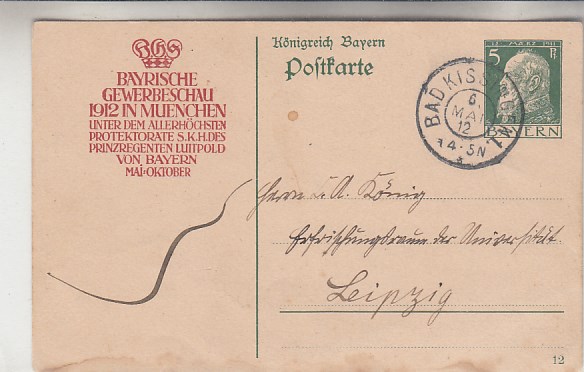 BGS
BAYRISCHE
GEWERBESCHAU
1912 IN MUENCHEN
UNTER DEM ALLERHÖCHSTEN
PROTEKTORATE S.K.H.DES
PRINZREGENTEN LUITPOLD
VON BAYERN
MAI-OKTOBER
Königreich Bayern
Postkarte
BAD KISSINGEN
6.
MAI
12
4-5N
12. MÄRZ 1911
5 Pf.
BAYERN
Herrn A. König
Erfrischungsraum der Universität
Leipzig
12